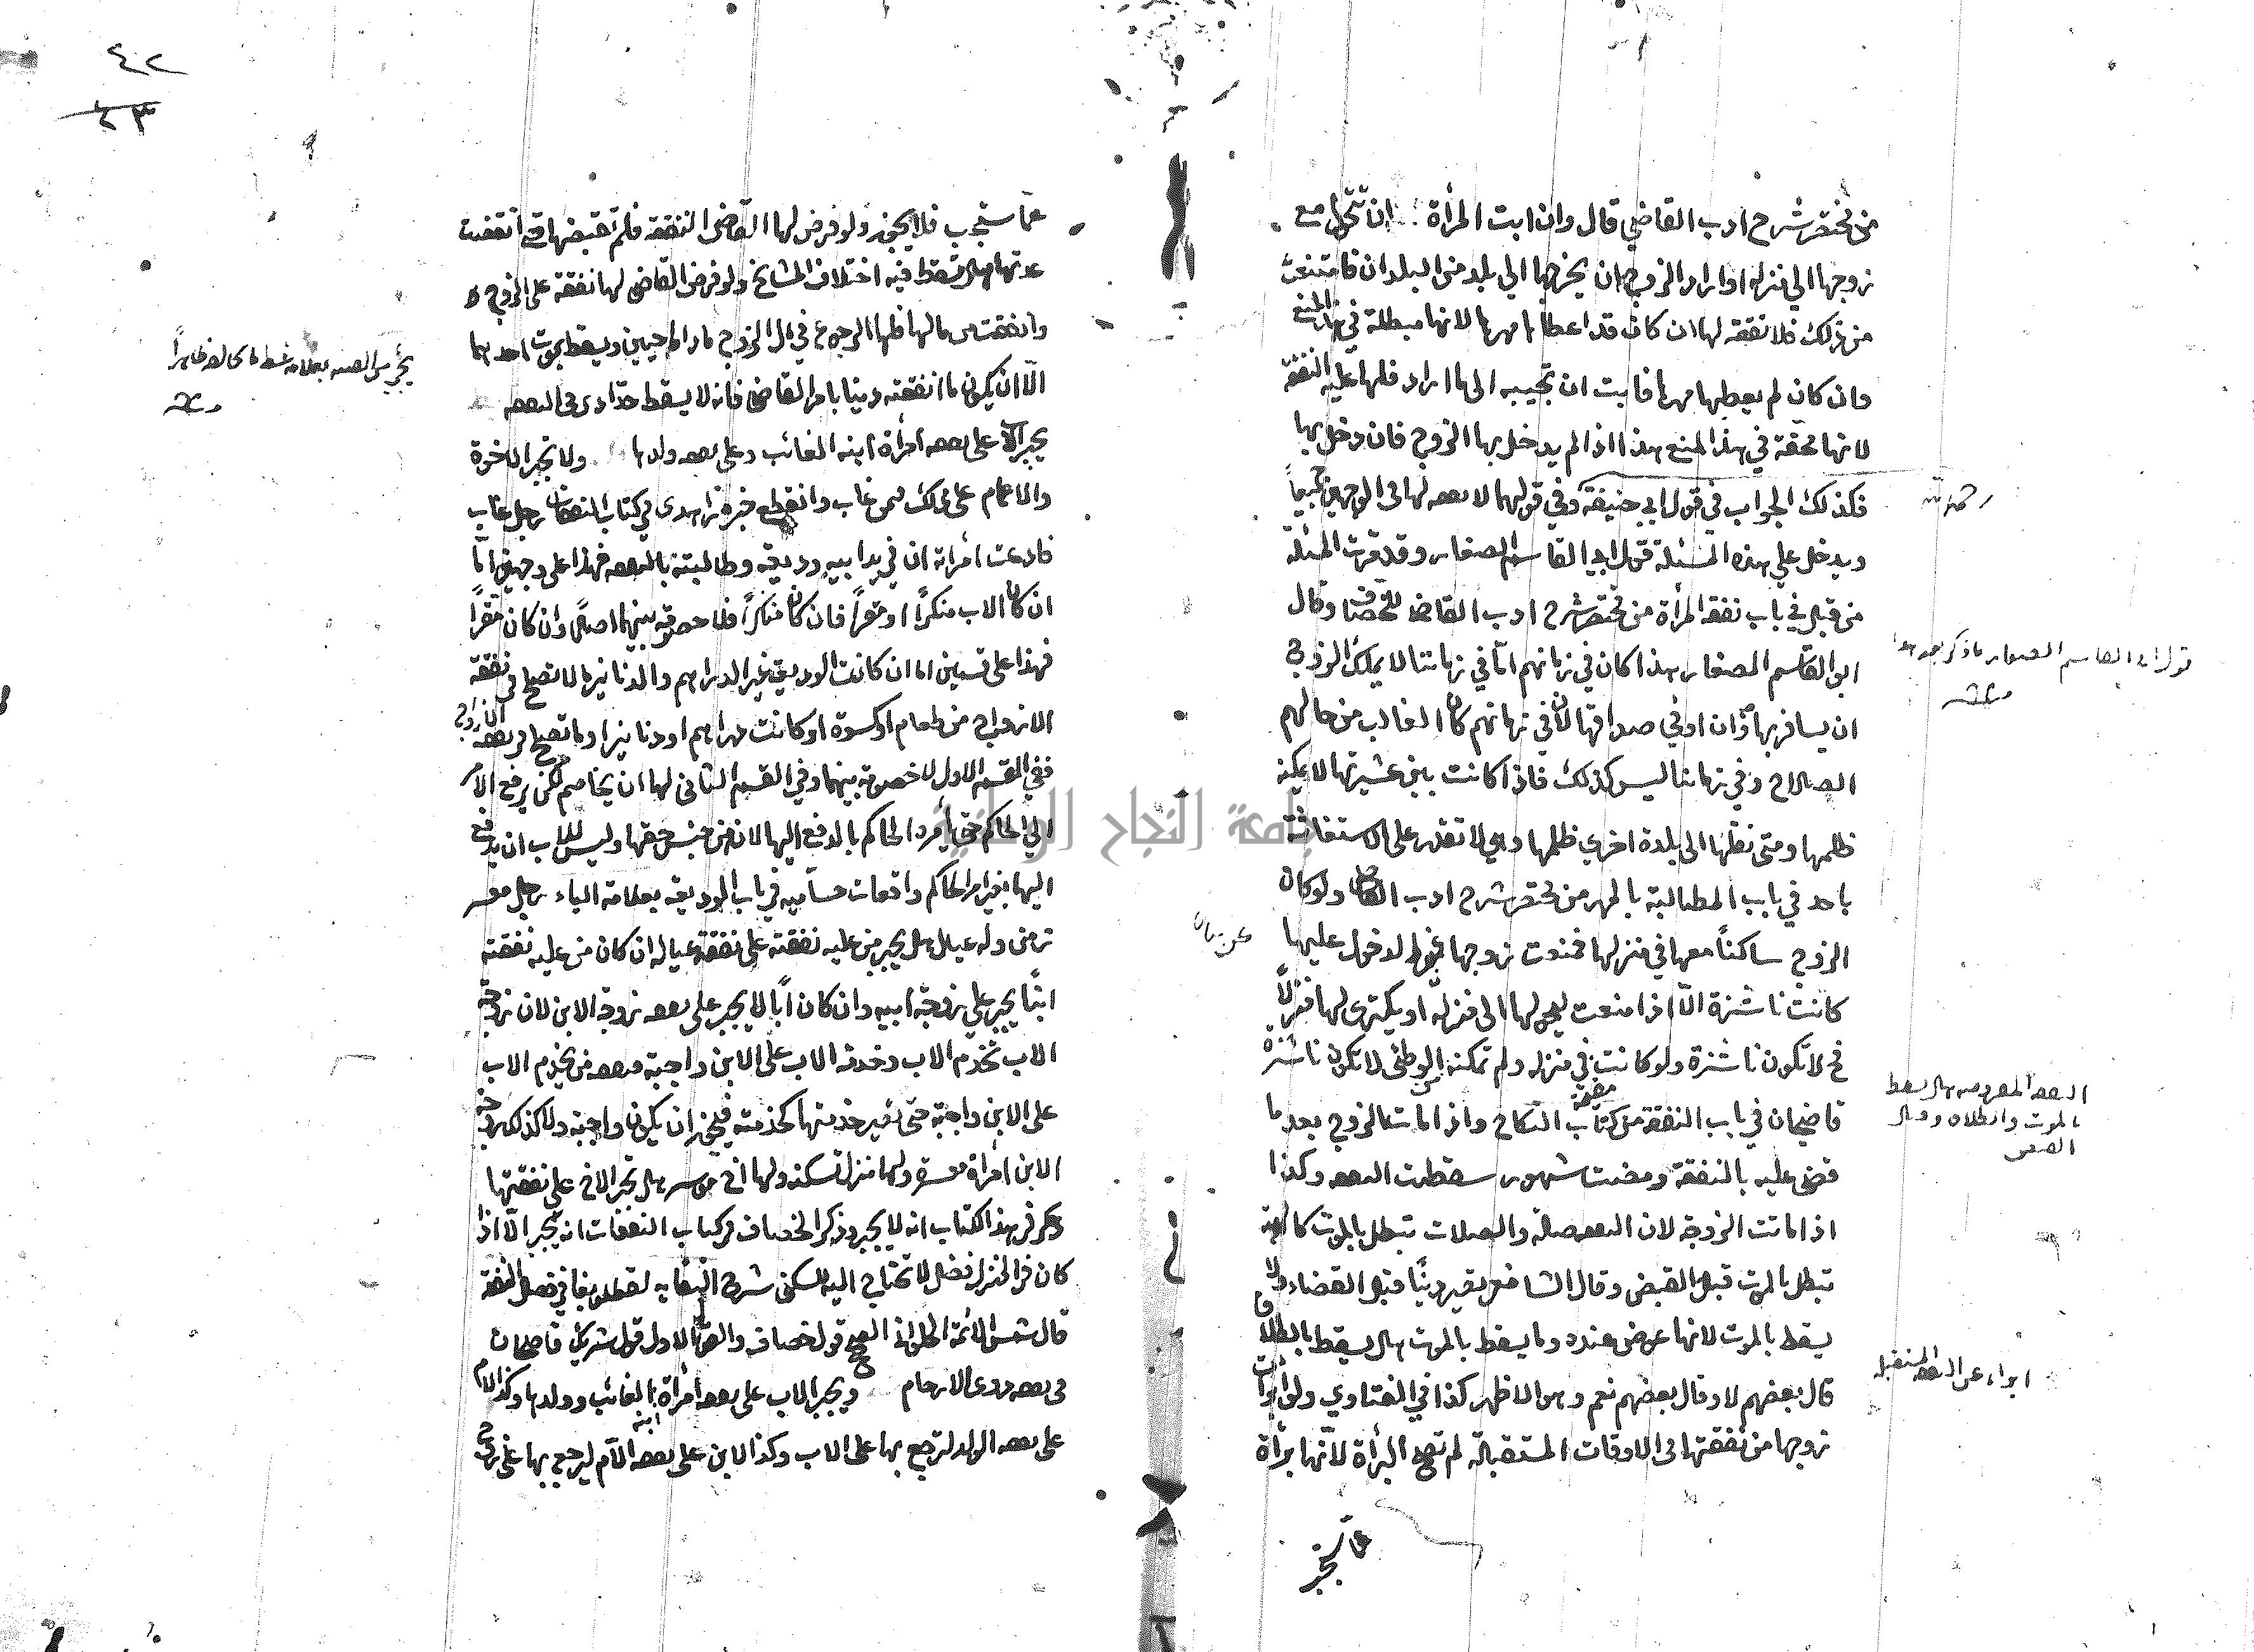 من مختصر شرح ادب القاضي قال وان ابت المرأة ان تتحول مع
زوجها الي منزله او اراد الزوج ان يخرجها الي بلد من البلدان فامتنعت
من ذلك فلا نفقة لها ان كان قد اعطاها مهرها لانها مبطلة في هذا المنع
وان كان لم يعطها مهرها فابت ان تجيبه الى ما اراد فلها عليه النفقة
لانها محقة في هذا المنع هذا اذا لم يدخل بها الزوج فان دخل بها
فكذلك الجواب في قول ابي حنيفة وفي قولهما لا نفقه لها في الوجهين جميعاً
رحمه الله
ويدخل علي هذه المسئلة قول ابي القاسم الصفار وقد مرت المسئلة
من قبل في باب نفقة المرأة من مختصر شرح ادب القاضي للخصاف وقال
ابو القاسم الصفار هذا كان في زمانهم امّا في زماننا لا يملك الزوج
قول ابي القاسم الصفار
ان يسافر بها وان اوفي صداقها لان في زمانهم كان الغالب من حالهم
الصلاح وفي زماننا ليس كذلك فاذا كانت بين عشيرتها لا يمكنه
ظلمها ومتى نقلها الى بلدة اخرى ظلمها وهي لا تقدر على الاستغاثة
باحد في باب المطالبة بالمهر من مختصر شرح ادب القاضي ولو كان
الزوج ساكناً معها في منزلها فمنعت زوجها عن الدخول عليها
كانت ناشزة الّا اذا منعت ليحولها الى منزله او يكترى لها منزلاً
فح لا تكون ناشزة ولو كانت في منزله ولم تمكنه من الوطئ لا تكون ناشزة
قاضيخان في باب النفقة من كتاب النكاح واذا مات الزوج بعد ما
النفقه المفروضه هل يسقط
بالموت والطلاق
قضى عليه بالنفقة ومضت شهور سقطت النفقه وكذا
اذا ماتت الزوجة لان النفقه صلة والصلات تبطل بالموت كالهبة
تبطل بالموت قبل القبض وقال الشافعي يصير ديناً قبل القضاء ولا
يسقط بالموت لانها عوض عنده وما يسقط بالموت هل يسقط بالطلاق
ابراء عن النفقه المستقبله
قال بعضهم لا وقال بعضهم نعم وهو الاظهر كذا في الفتاوي ولو ابرأت
زوجها من نفقتها في الاوقات المستقبلة لم تصح البرأة لانها برأة
عما
عما سيجب فلا يجوز ولو فرض لها القاضي النفقة فلم تقبضها حتى انقضت
عدتها هل تسقط فيه اختلاف المشايخ ولو فرض القاضي لها نفقة على الزوج
وانفقت من مالها فلها الرجوع في مال الزوج ما داما حيين ويسقط بموت احدهما
الّا ان يكون ما انفقته دينا بامر القاضي فانه لا يسقط حدادى في النفقه
يجبر الاب على نفقه امرأة ابنه الغائب وعلى نفقه ولدها ولا تجبر الاخوة
والاعمام على ذلك فيمن غاب وانقطع خبره زاهدى في كتاب النفقات رجل غاب
فادعت امرأته ان في يد ابيه وديعة وطالبته بالنفقه فهذا على وجهين امّا
ان كان الاب منكراً او مقراً فان كان منكراً فلا خصومة بينهما اصلاً وان كان مقراً
فهذا على قسمين اما ان كانت الوديعة غير الدراهم والدنانير مما لا تصلح في نفقة
الازواج من طعام او كسوة او كانت دراهم او دنانير او ما تصلح في نفقة الازواج
ففي القسم الاول لا خصومة بينهما وفي القسم الثاني لها ان يخاصم لكن يرفع الامر
الي الحاكم حتى يأمره الحاكم بالدفع اليها لانه من جنس حقها وليس للاب ان يدفع
اليها بغير امر الحاكم واقعات حساميه في باب الوديعة بعلامة الياء رجل معسر
زمن وله عيال هل يجبر من عليه نفقته على نفقة عياله ان كان من عليه نفقته
ابناً يجبر علي زوجة ابيه وان كان اباً لا يجبر على نفقه زوجة الابن لان زوجة
الاب تخدم الاب وخدمة الاب على الابن واجبة ونفقه من يخدم الاب
على الابن واجبة حتى تصير خدمتها كخدمته فيجوز ان يكون واجبة ولا كذلك زوجة
الابن امرأة معسرة ولها منزل تسكنه ولها اخ موسر هل تجبر الاخ على نفقتها
ذكر في هذا الكتاب انه لا يجبر وذكر الخصاف في كتاب النفقات انه يجبر الّا اذا
كان في المنزل فضل لا تحتاج اليه للسكنى شرح النقايه لقطلوبغا في فصل النفقة
قال شمس الائمة الحلواني الصحيح قول خصاف والقول الاول قول شريك قاضيخان
في نفقه ذوى الارحام ويجبر الاب على نفقه امرأة ابنه الغائب وولدها وكذا الام
على نفقه الولد لترجع بها على الاب وكذا الابن على نفقه الام ليرجع بها على زوج
٤٢
٤٣
جامعة النجاح الوطنية